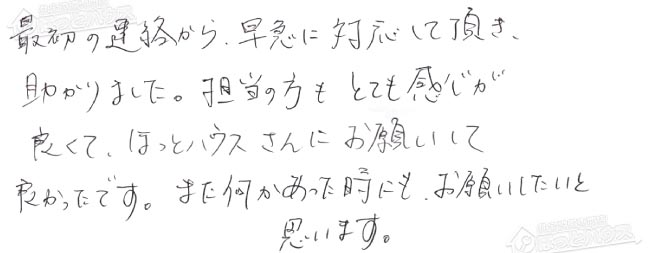 最初の連絡から、早急に対応して頂き、
助かりました。担当の方もとても感じが
良くて、ほっとハウスさんにお願いして
良かったです。また何かあった時にも、お願いしたいと
思います。